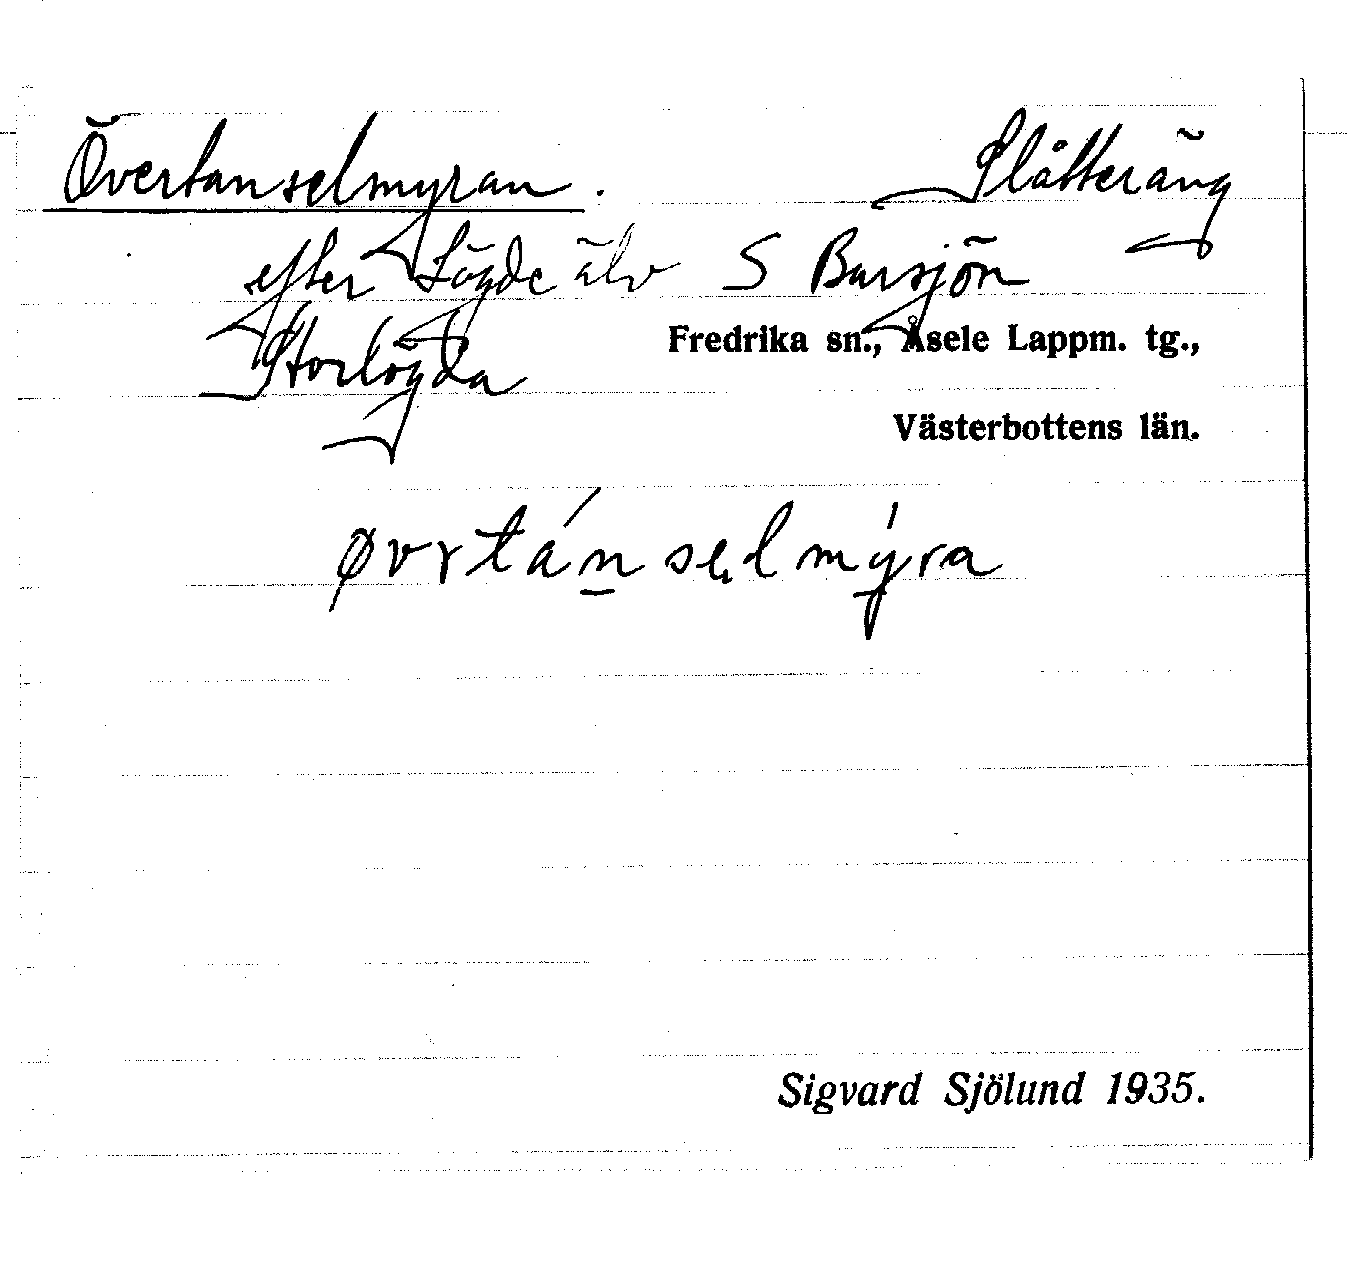 Övertanselmyran. Slåtteräng
efter Lögde älv S Bursjön
Storlögda Fredrika sn., Åsele Lappm. tg.,
Västerbottens län.
øvrtánselmýra
Sigvard Sjölund 1935.